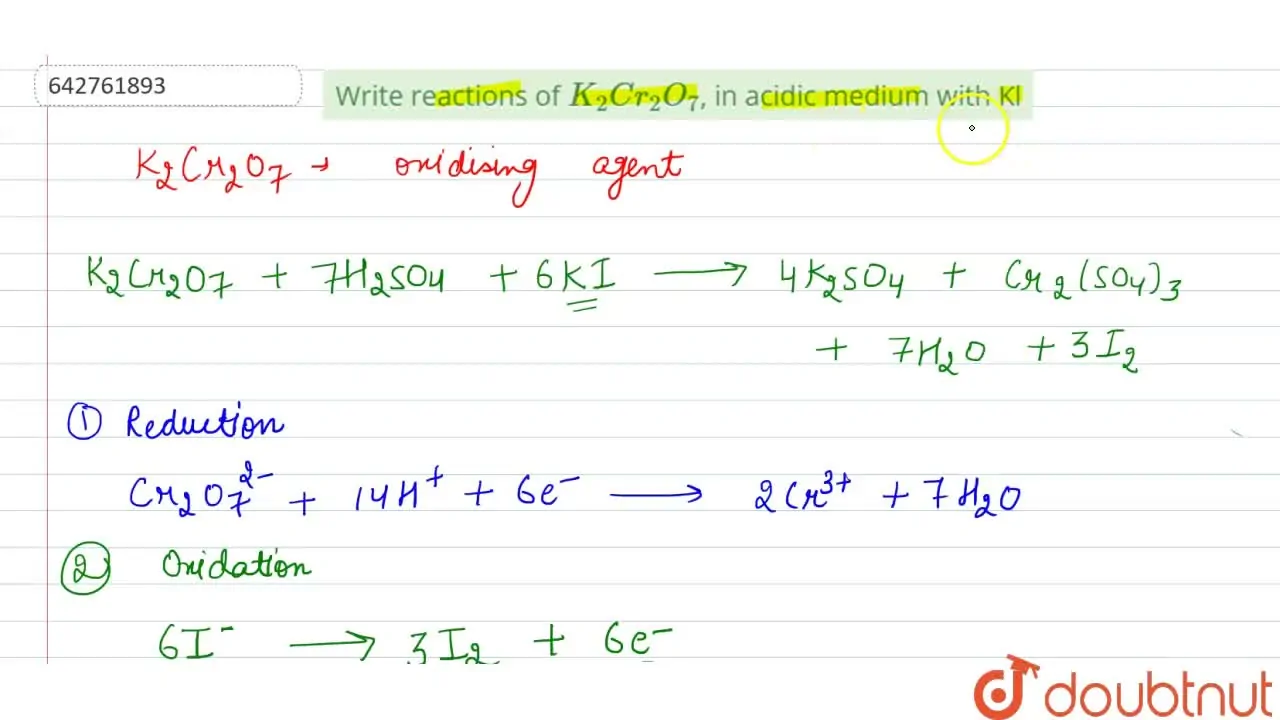 642761893
Write reactions of K₂Cr₂O₇, in acidic medium with KI
K₂Cr₂O₇ → oxidising agent
K₂Cr₂O₇ + 7H₂SO₄ + 6KI ⟶ 4K₂SO₄ + Cr₂(SO₄)₃
+ 7H₂O + 3I₂
① Reduction
Cr₂O₇²⁻ + 14H⁺ + 6e⁻ ⟶ 2Cr³⁺ + 7H₂O
② Oxidation
6I⁻ ⟶ 3I₂ + 6e⁻
doubtnut